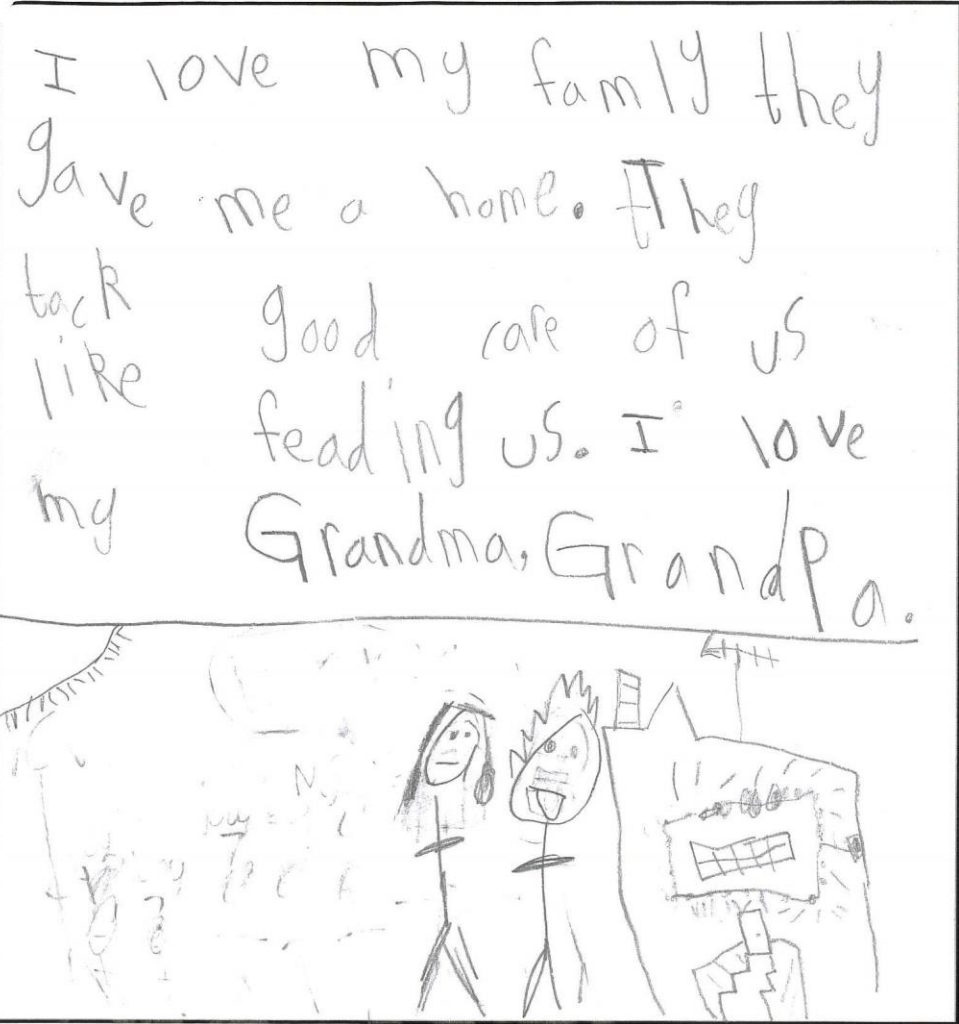 I love my famly they
gave me a home. They
tack good care of us
like feading us. I love
my Grandma, GrandPa.